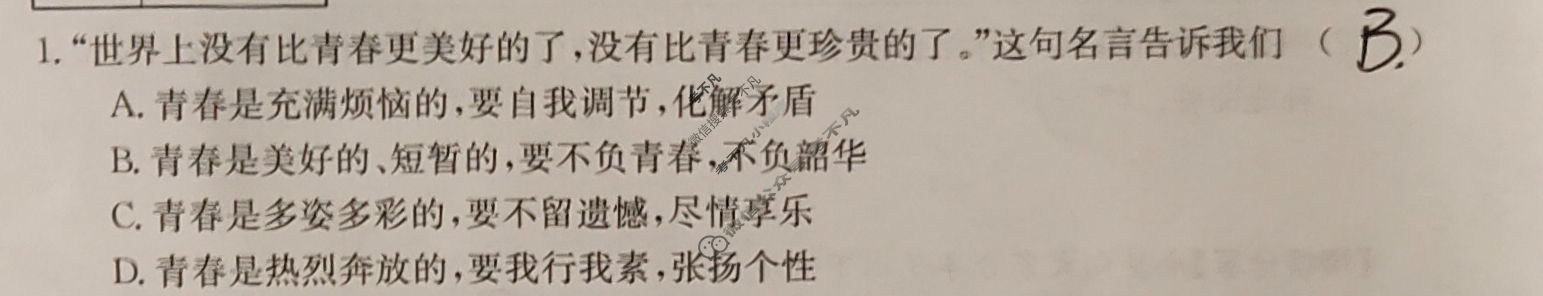 1.“世界上没有比青春更美好的了,没有比青春更珍贵的了。”这句名言告诉我们 ( B. )
A. 青春是充满烦恼的,要自我调节,化解矛盾
B. 青春是美好的、短暂的,要不负青春,不负韶华
C. 青春是多姿多彩的,要不留遗憾,尽情享乐
D. 青春是热烈奔放的,要我行我素,张扬个性